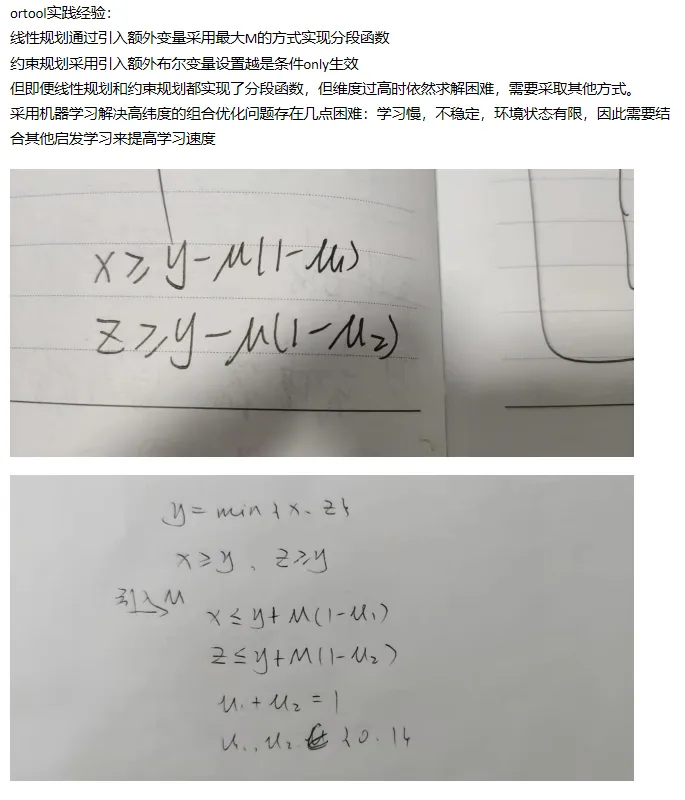 ortool实践经验：
线性规划通过引入额外变量采用最大M的方式实现分段函数
约束规划采用引入额外布尔变量设置越是条件only生效
但即便线性规划和约束规划都实现了分段函数，但维度过高时依然求解困难，需要采取其他方式。
采用机器学习解决高纬度的组合优化问题存在几点困难：学习慢，不稳定，环境状态有限，因此需要结
合其他启发学习来提高学习速度
x ≥ y - M(1 - u₁)
z ≥ y - M(1 - u₂)
y = min{x、z}
x ≥ y、z ≥ y
引入M
x ≤ y + M(1 - u₁)
z ≤ y + M(1 - u₂)
u₁ + u₂ = 1
u₁、u₂ ∈ {0.1}